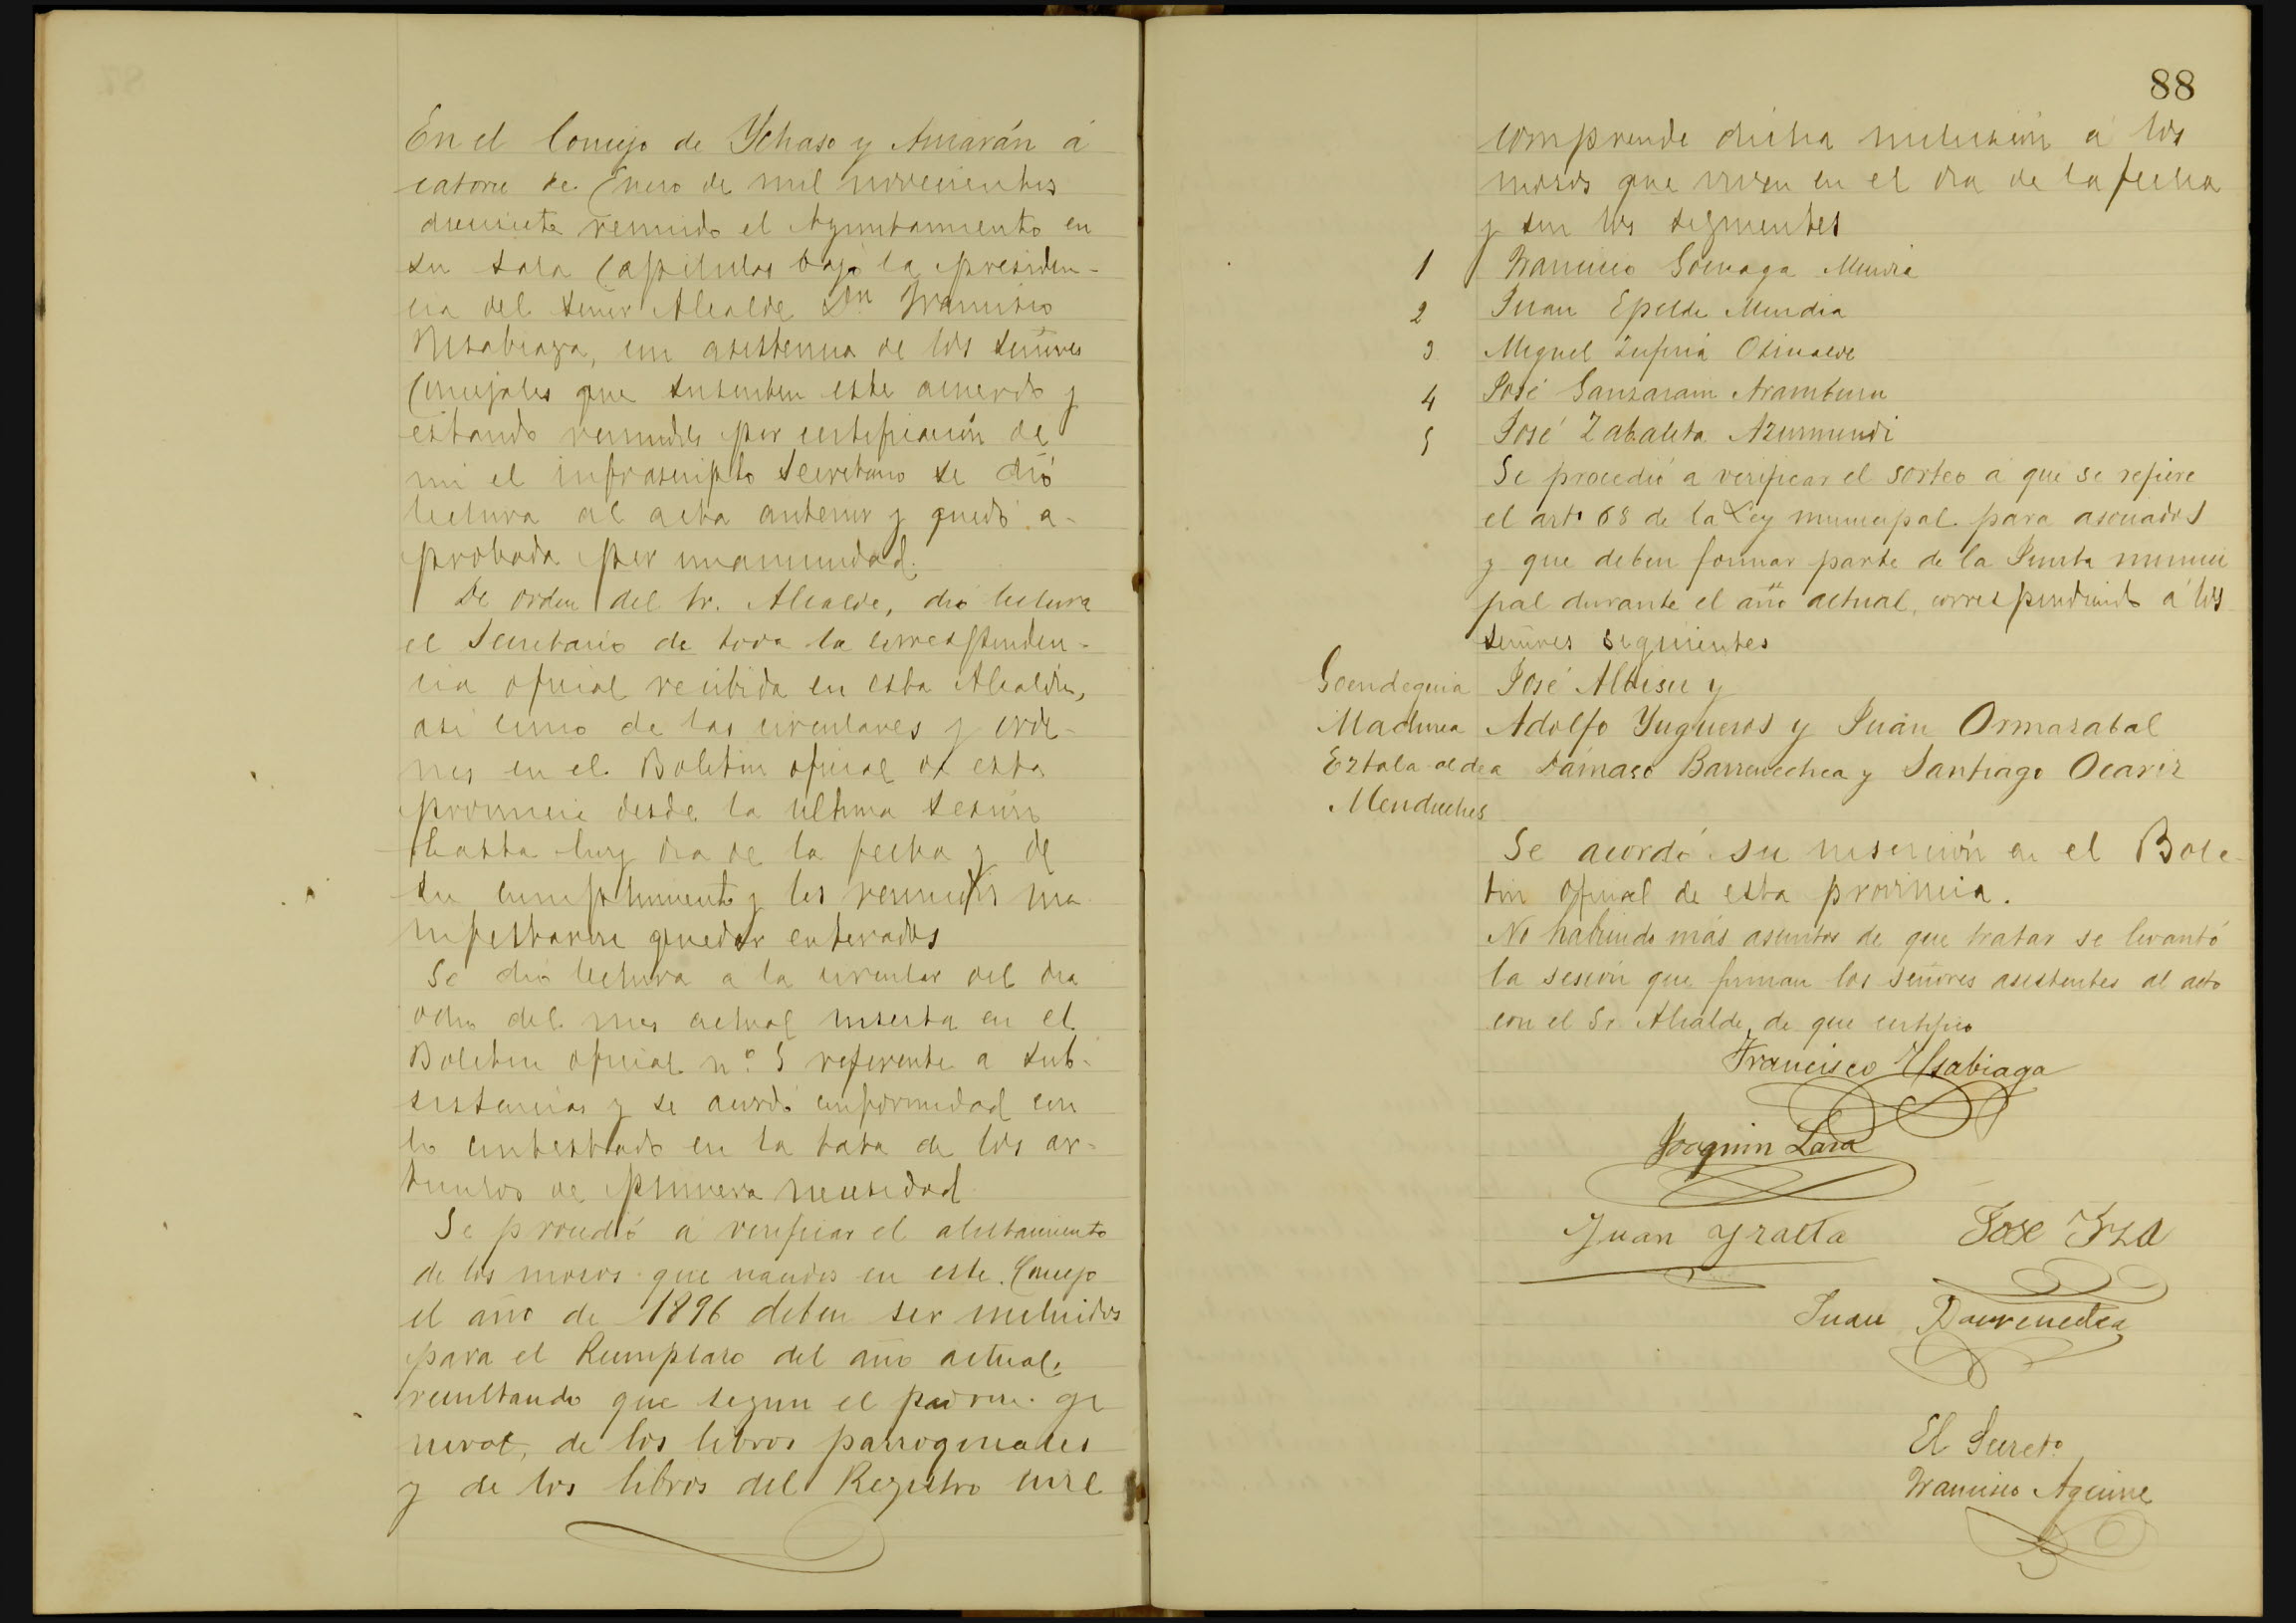 En el Concejo de Ychaso y Arriarán á
catorce de Enero de mil novecientos
diecisiete reunido el Ayuntamiento en
su Sala Capitular bajo la presiden-
cia del señor Alcalde Dn Francisco
Usabiaga, con asistencia de los señores
Concejales que suscriben este acuerdo y
estando reunidos por certificación de
mi el infrascripto Secretario se dió
lectura al acta anterior y quedó a-
probada por unanimidad.
De orden del Sr. Alcalde, dió lectura
el Secretario de toda la correspondén-
cia oficial recibida en esta Alcaldia,
asi como de las circulares y orde-
nes en el Boletin oficial de esta
provincia desde la última sesión
hasta hoy dia de la fecha y de
su cumplimiento y los reunidos ma
nifestaron quedar enterados
Se dió lectura a la circular del dia
ocho del mes actual inserta en el
Boletin oficial n.º 5 referente a sub-
sistencias y se acordó conformidad con
lo contestado en la tasa de los ar-
ticulos de primera necesidad
Se procedió á verificar el alistamiento
de los mozos que nacidos en este Concejo
el año de 1896 deben ser incluidos
para el Reemplazo del año actual,
resultando que segun el padron ge
neral, de los libros parroquiales
y de los libros del Registro civil
88
comprende dicha inclusión á los
mozos que viven en el dia de la fecha
y son los siguientes
1 Francisco Goenaga Mendia
2 Juan Epelde Mendia
3 Miguel Zufiria Otinalde
4 José Ganzarain Aramburu
5 José Zabaleta Azurmendi
Se procedió a verificar el sorteo á que se refiere
el artº 68 de la Ley municipal para asociados
y que deben formar parte de la Junta munici
pal durante el año actual, correspondiendo á los
señores siguientes
Goendeguia José Albisu y
Machinea Adolfo Yugueros y Juan Ormazabal
Eztala aldea Dámaso Barrenechea y Santiago Ocariz
Mendiches
Se acordó su inserción en el Bole-
tin oficial de esta provincia.
No habiendo más asuntos de que tratar se levantó
la sesión que firman los señores asistentes al acto
con el Sr Alcalde, de que certifico
Francisco Usabiaga
Joaquin Lasa
Juan Yraeta José Yza
Juan Barrenechea
El Secretº
Francisco Aguirre